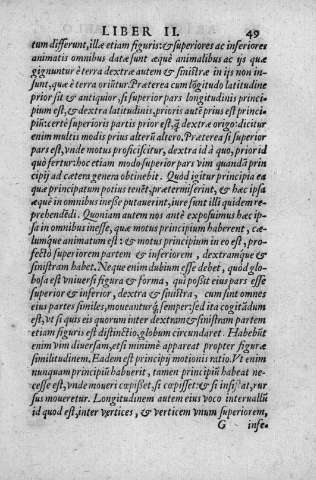 LIBER II. 49
tum differunt, illæ etiam figuris: & superiores ac inferiores
animatis omnibus datæ sunt æquè animalibus ac ijs quæ
gignuntur è terra dextræ autem & sinistræ in ijs non in-
sunt, quæ è terra oriūtur. Præterea cum lōgitudo latitudine
prior sit & antiquior, si superior pars longitudinis princi-
pium est, & dextra latitudinis, prioris autē prius est princi-
piū: certe superioris partis prior est, q̄ dextræ origo: dicitur
enim multi modis prius alterū altero. Præterea si superior
pars est, vnde motus proficiscitur, dextra id à quo, prior id
quò fertur: hoc etiam modo superior pars vim quandā prin
cipij ad cætera genera obtinebit. Quòd igitur principia ea
quæ principatum potius tenēt, prætermiserint, & hæc ipsa
æquè in omnibus inesse putauerint, iure sunt illi quidem re
prehendēdi. Quoniam autem nos antè exposuimus hæc ip-
sa in omnibus inesse, quæ motus principium haberent, cæ-
lumque animatum est: & motus principium in eo est, pro-
fectò superiorem partem & inferiorem, dextramque &
sinistram habet. Neque enim dubium esse debet, quòd glo-
bosa est vniuersi figura & forma, qui possit eius pars esse
superior & inferior, dextra & sinistra, cum sint omnes
eius partes similes, moueanturq́; semper: sed ita cogitādum
est, vt si quis eis quorum inter dextram & sinistram partem
etiam figuris est distinctio, globum circundaret. Habebūt
enim vim diuersam, etsi minimè appareat propter figuræ
similitudinem. Eadem est principij motionis ratio. Vt enim
nunquam principiū habuerit, tamen principiū habeat ne-
cesse est, vnde moueri cœpisset, si cœpisset: & si insistat, rur
sus moueretur. Longitudinem autem eius voco interuallū
id quod est, inter vertices, & verticem vnum superiorem,
G infe-